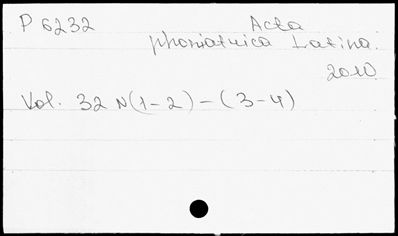 P 6232 Acta
phoniatrica Latina.
2010
Vol. 32 N(1-2) - (3-4)